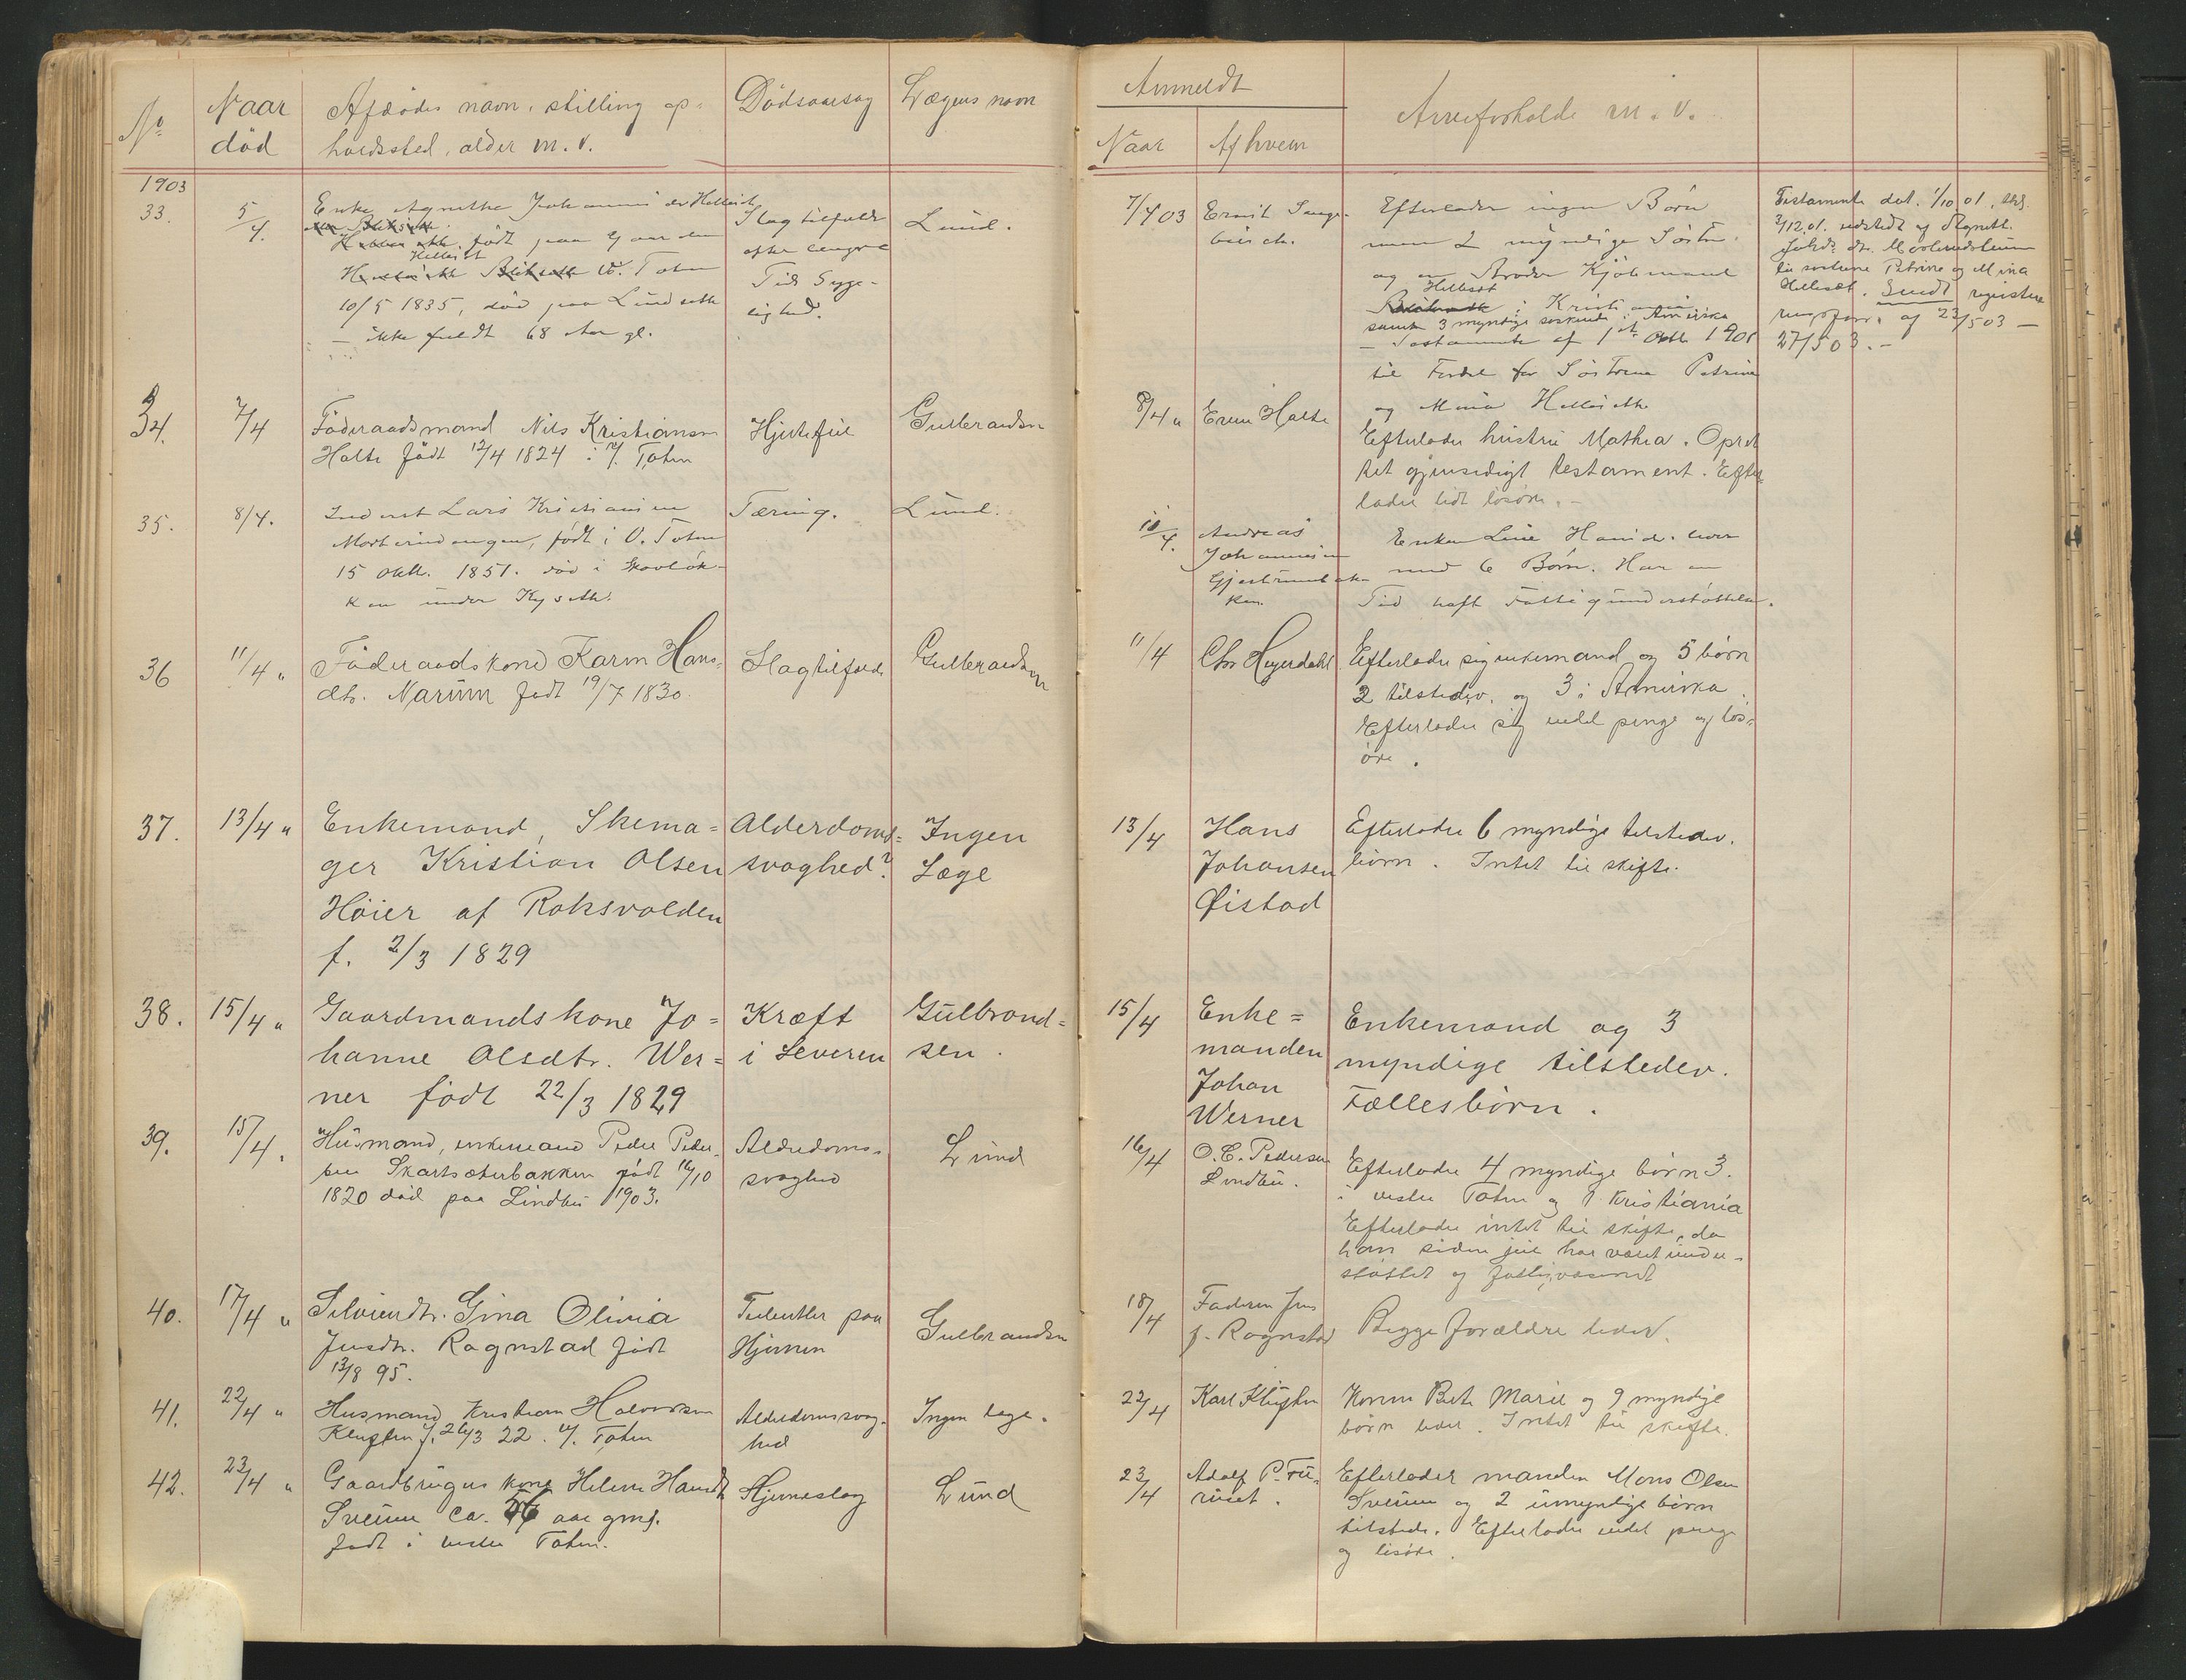 No
Naar
död
Afdödes navn, stilling op-
holdssted, alder m.v.
Dödsaarsag
Lægens navn
Anmeldt
Naar
Af hvem
Arveforholde m.v.
1903
33.
5/4.
Enke Agnethe Johannesdr Helleseth
födt paa Gaarden
Hellesét
V. Toten
10/5 1835, död paa Lundseth
– ikke fuldt 68 Aar gl.
Slagtilfælde
efter længere
Tids Syge-
lighed.
Lund.
7/4 03
Efterlader ingen Börn
men 2 myndige Söstre
og en Broder Kjöbmand
Hellesét
i Kristiania
samt 3 myndige söskende i Amerika
– Testamente af 1st Oktb. 1901
til Fordel for Söstrene Petrine
og Mina Helleseth
Testamente dat. 1/10 01,
3/12.01. udstedt af Agneth.
Johs. dr.
til søstrene Petrine og Mina
Hellesæt. Sendt registre
ringsforr. af 23/5 03 –
27/5 03. –
34.
7/4
Föderaadsmand Nils Kristiansen
Holte födt 12/4 1824 i V. Toten
Hjertefeil
Gulbrandsen
8/4 "
Even Holte
Efterlader hustru Mathea. Opret
tet gjensidigt testament. Efter
lader lidt lösöre. –
35.
8/4.
Inderst Lars Kristiansen
födt i V. Toten
15 oktb. 1851. död i Skovlök-
ken under Kyseth.
Tæring.
Lund.
10/4.
Andreas
Johannesen
ken.
Enken Line Hansdr. lever
med 6 Börn. Har en
Tid haft Fattigunderstöttelse.
36
11/4 "
Föderaadskone Karen Hans-
dtr. Narum födt 19/7 1830.
Slagtilfælde
Gulbrandsen
11/4
Chr Heyerdahl
Efterlader sig enkemand og 5 börn
2 tilstedev. og 3 i Amerika.
Efterlader sig endel penge og lös-
öre.
37.
13/4 "
Enkemand, Skema-
ger Kristian Olsen
Höier af Roksvolden
f. 2/3 1829
Alderdoms-
svaghed?
Ingen
Læge
13/4
Hans
Johansen
Øistad
Efterlader 6 myndige tilstedev.
börn. Intet til skifte.
38.
15/4 "
Gaardmandskone Jo=
hanne Olsdtr. Wer=
ner födt 22/3 1829
Kræft
i Leveren
Gulbrand=
sen.
15/4
Enke=
manden
Johan
Werner
Enkemand og 3
myndige tilstedev.
Fællesbörn.
39.
15/4.
Husmand, enkemand Peder Peder-
sen Skartseterbakken födt 16/10
1820 död paa Lindbu 1903.
Alderdoms-
svaghed
Lund
16/4
O.C. Pedersen
Lindbu.
Efterlader 4 myndige börn 3.
i vestre Toten og 1 Kristiania
Efterlader intet til skifte, da
han siden jul har været under-
støttet af fattigvæsenet
40.
17/4 "
Selveierdtr. Gina Olivia
Jensdtr. Rognstad födt
13/8 95.
Tuberkler paa
Hjernen
Gulbrandsen
18/4
Faderen Jens
J. Rognstad
Begge forældre lever.
41.
22/4 "
Husmand Kristian Halvorsen
Kluften f. 26/3 22. V. Toten
Alderdomssvag-
hed
Ingen læge.
22/4
Karl Kluften
Konen Berte Marie og 9 myndige
börn lever. Intet til skifte.
42.
23/4 "
Gaardbrugers kone Helene Hansdtr
Sveum ca. 56 aar gml.
födt i vestre Toten.
Hjerneslag
Lund
23/4
Adolf P. Fu-
ruset.
Efterlader manden Mons Olsen
Sveum og 2 umyndige börn
tilstede. Efterlader endel penge
og lösöre.